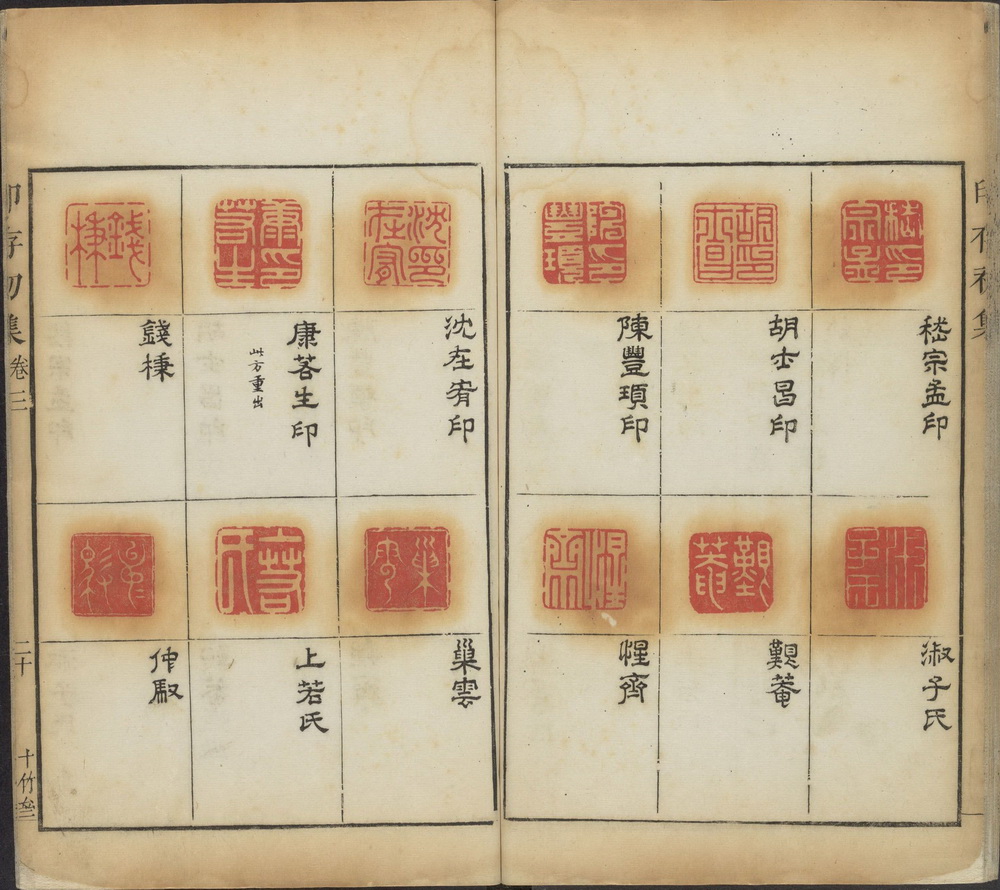 嵇宗孟印
胡士昌印
陳豐頊印
淑子氏
艱菴
惺齊
沈在宥印
康茖生印
此方重出
錢棅
巢雲
上若氏
仲馭
印存初集
卷三
二十
十竹